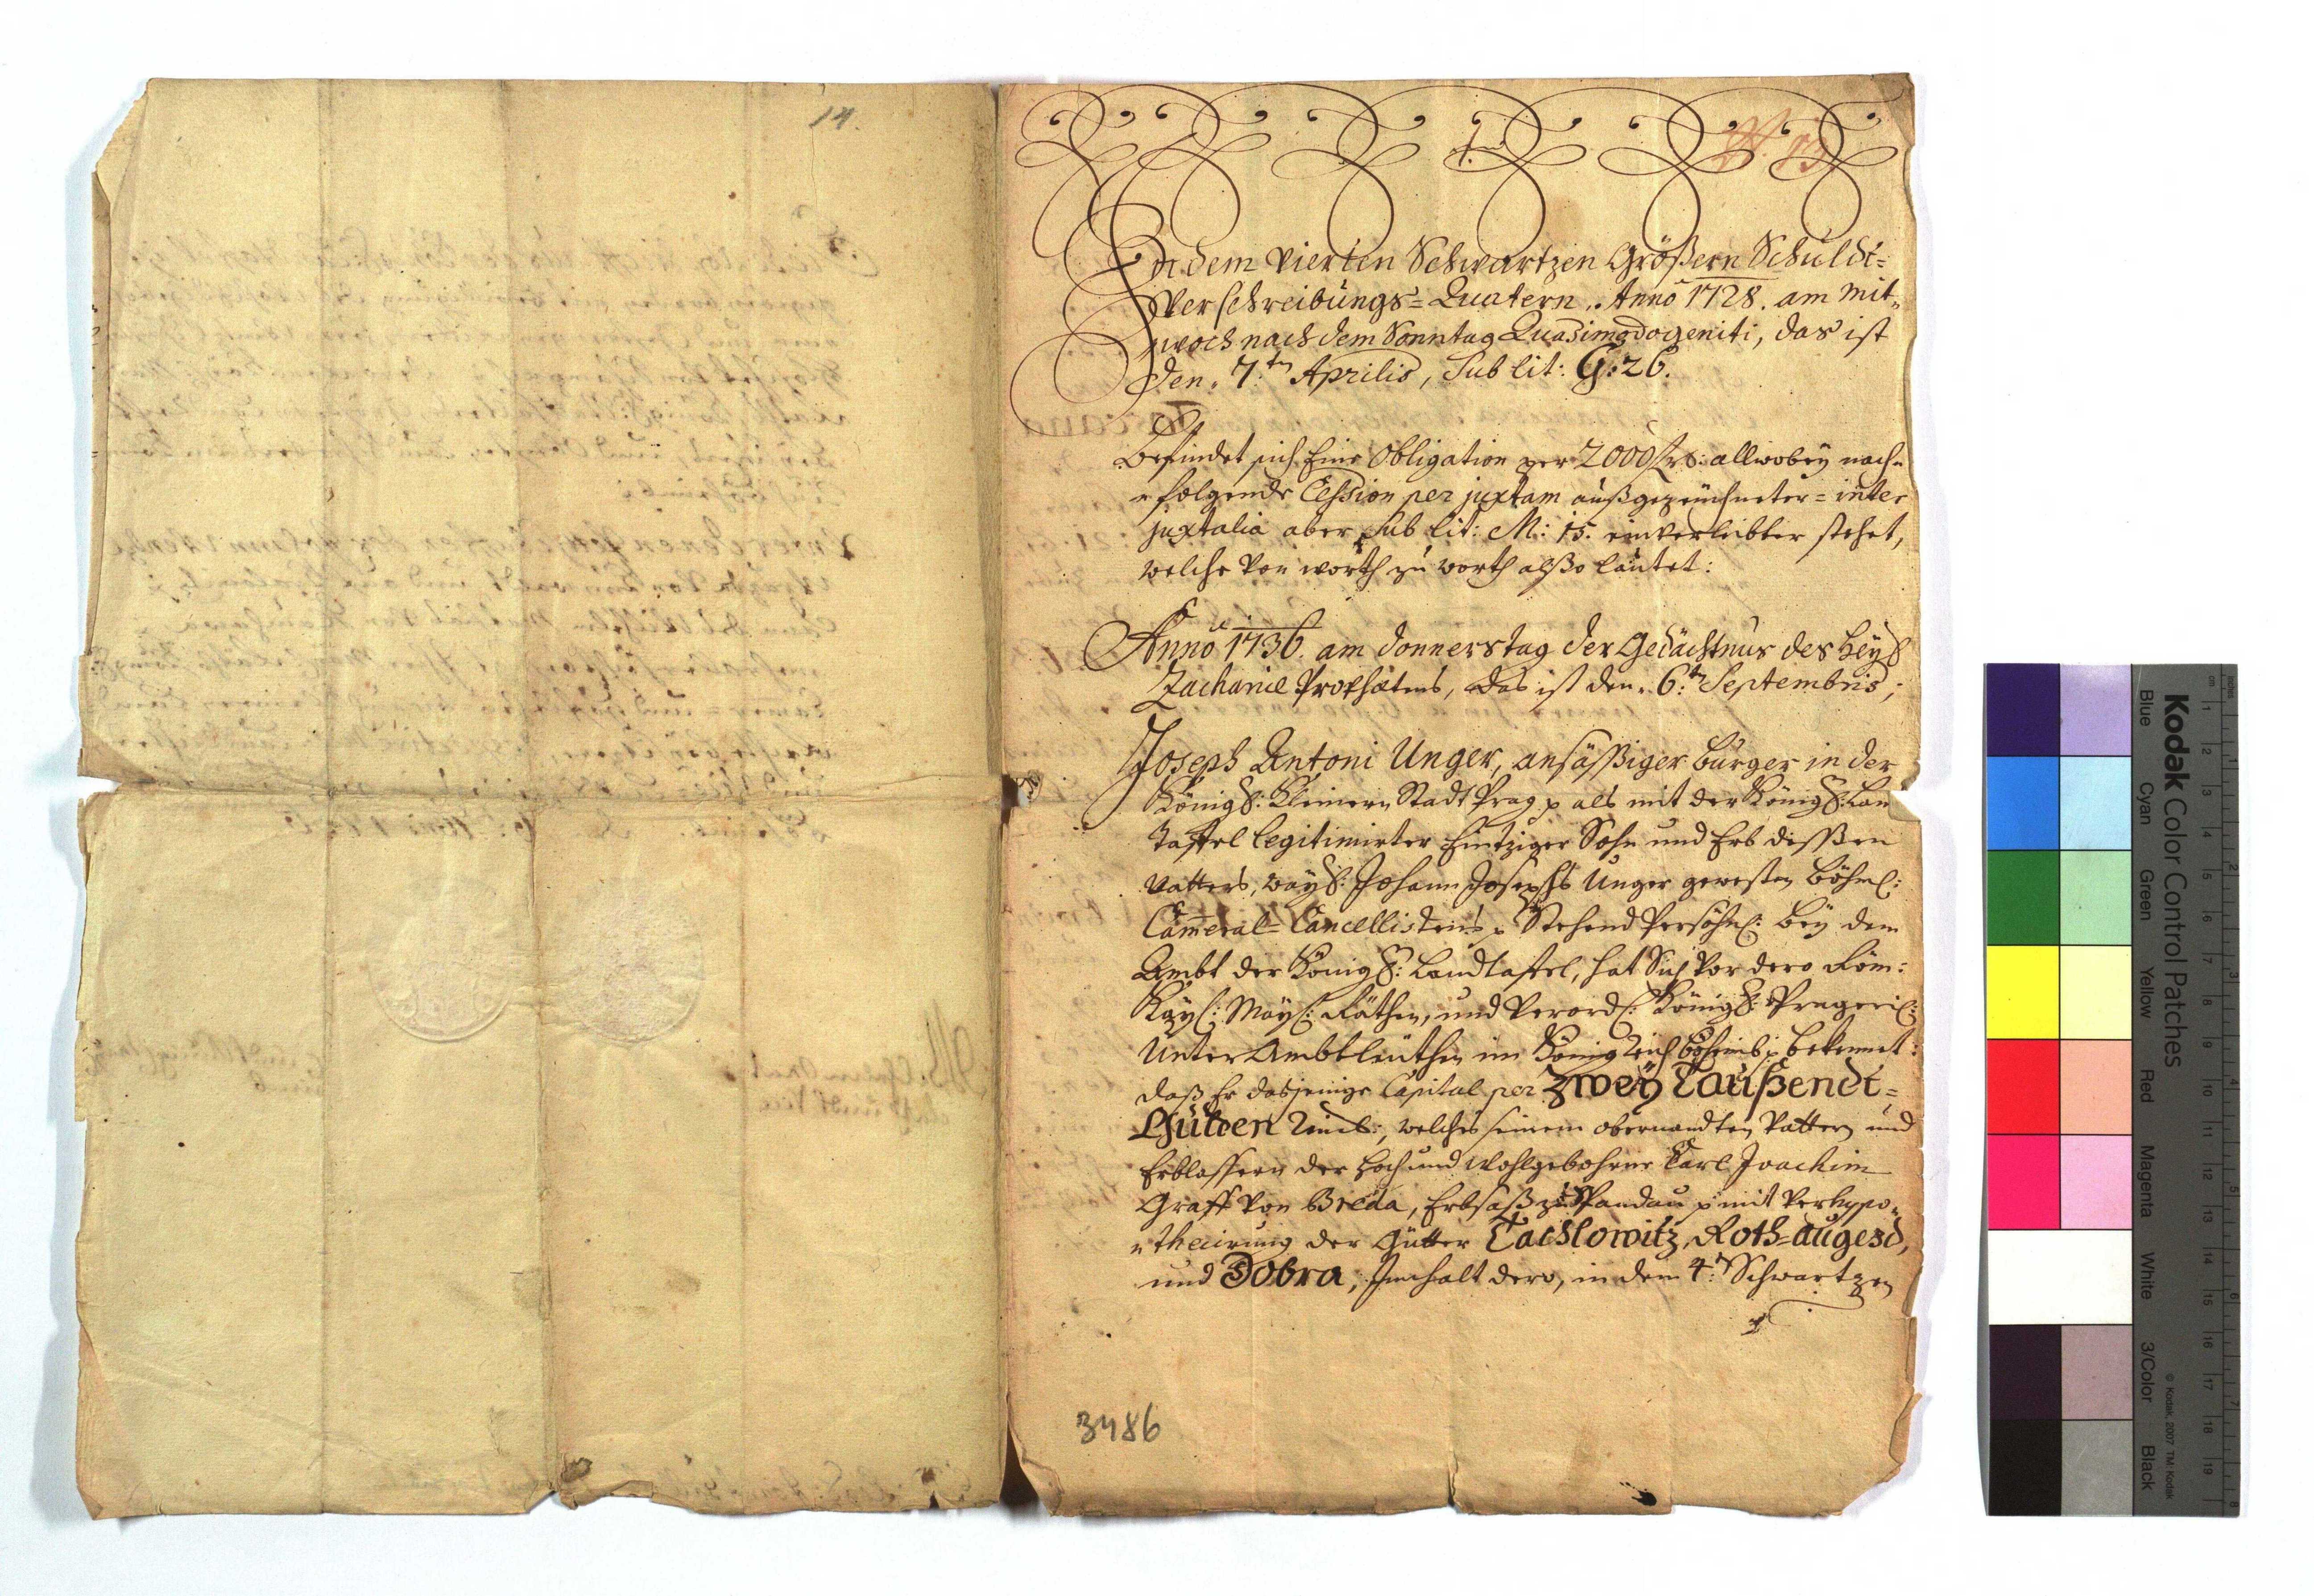 14.
In dem Vierten Schwartzen Größern Schuldt=
Verschreibungs=Quatern. Anno 1728. am Mit„
„woch nach dem Sonntag Quasimodogeniti, das ist
den. 7.ten Aprilis, Sub lit: G: 26.
Befindet sich Eine Obligation per 2000 allwobey nach„
„folgende Cession per juxtam außgezeichneter= inter
juxtalia aber sub lit: M: 15. einverleibter stehet,
welche von worth zu worth alßo lautet:
Anno 1736. am Donnerstag der Gedächtnus des Heyl
Zachariae Prophætens, das ist den. 6.ten Septembris;
Joseph Antoni Unger, ansässiger Burger in der
Königl: Kleinern Stadt Prag p als mit der Königl: Lan
Taffel legitimirter Eintziger Sohn und Erb dessen
Vatters, weyl: Johann Josephs Unger gewesten Böhml:
Cameral=Cancellistens p Stehend Persöhnl: bey dem
Ambt der Königl: Landtaffel, hat Sich vor dero Röm:
Kayl: May: Räthen, und Verordl: Königl: Pragerl:
Unter Ambtleuthen im Königreich Böheimb p bekennet:
daß Er dasjenige Capital per Zwey Taußendt=
Gulden Rheinl:, welches seinem obernandten Vattern und
Erblassern der Hoch und Wohlgebohrne Carl Joachim
Graff von Breda, Erbsaß zu Spandau p mit Verhypo„
„thecirung der Gütter Tachlowitz, Roth=Augezd,
und Dobra, Innhalt dero, in dem 4.ten Schwartzen
3486
Kodak Color Control Patches
© Kodak, 2007 TM: Kodak
Blue Cyan Green Yellow Red Magenta White 3/Color Black
inches 1 2 3 4 5 6 7 8
cm 1 2 3 4 5 6 7 8 9 10 11 12 13 14 15 16 17 18 19